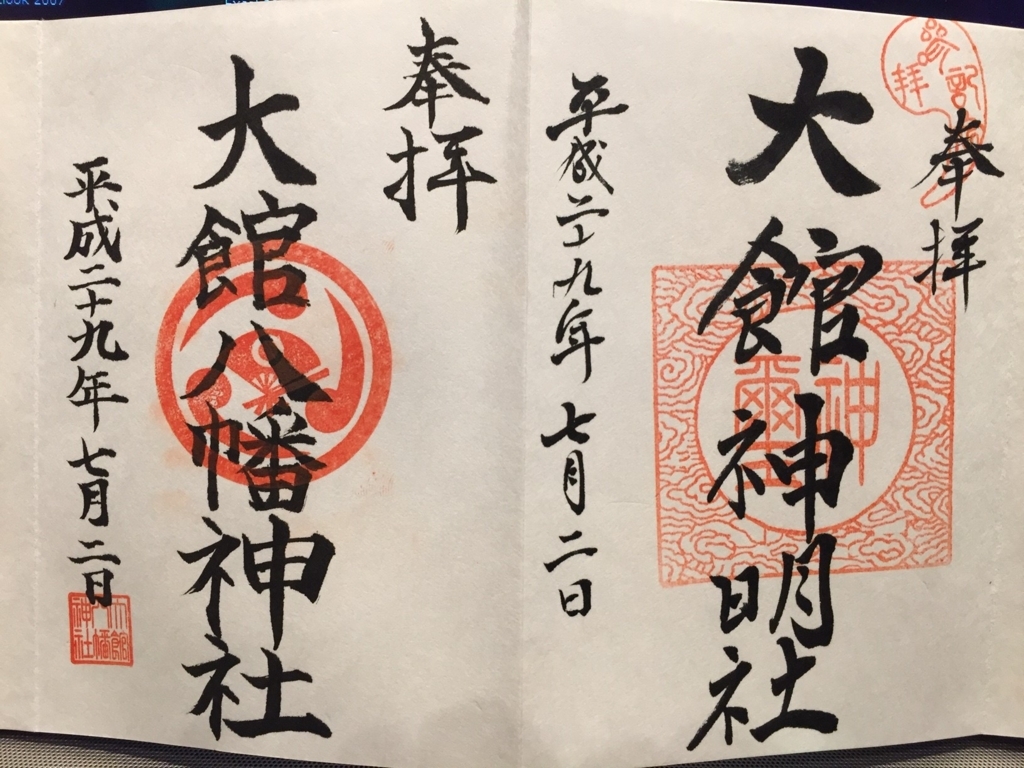 奉拝
大館神明社
平成二十九年七月二日
奉拝
大館八幡神社
平成二十九年七月二日
大館
八幡
神社